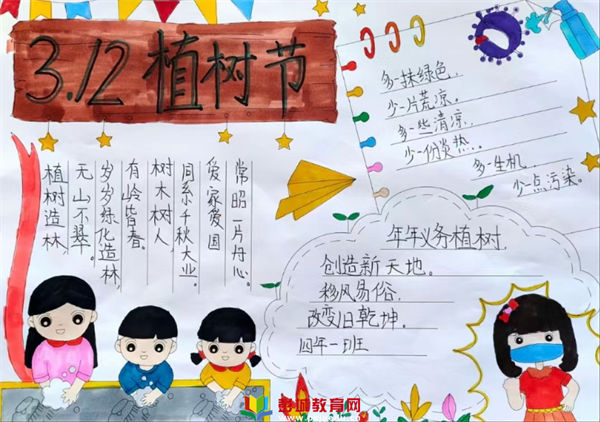 3.12 植树节
植树造林,
无山不翠。
岁岁绿化造林
有岭皆春。
树木树人
同系千秋大业。
爱家爱国
常昭一片丹心。
多一抹绿色..
少一片荒凉。
多一些清凉..
少一份炎热...
多一生机..
少一点污染。
年年义务植树,
创造新天地。
移风易俗,
改变旧乾坤.
四年一班
彭城教育网